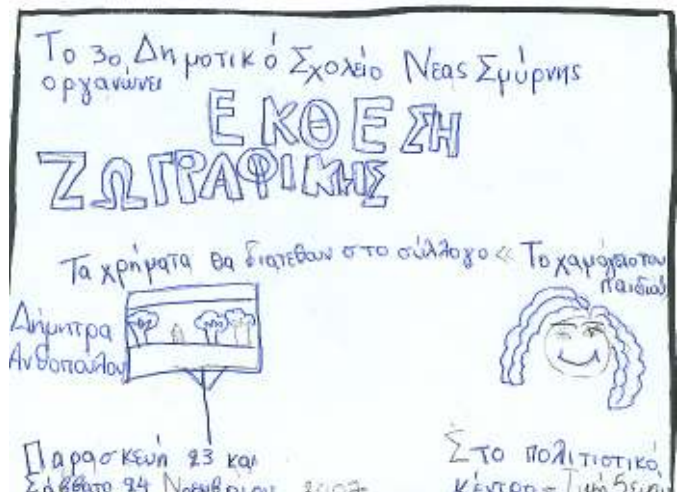 Το 3ο Δημοτικό Σχολείο Νέας Σμύρνης
οργανώνει
ΕΚΘΕΣΗ
ΖΩΓΡΑΦΙΚΗΣ
Τα χρήματα θα διατεθούν στο σύλλογο «Το χαμόγελο του
παιδιού
Δήμητρα
Ανθοπούλου
Παρασκευή 23 και
Σάββατο 24 Νοεμβρίου 2007
Στο πολιτιστικό
κέντρο - Τιμή